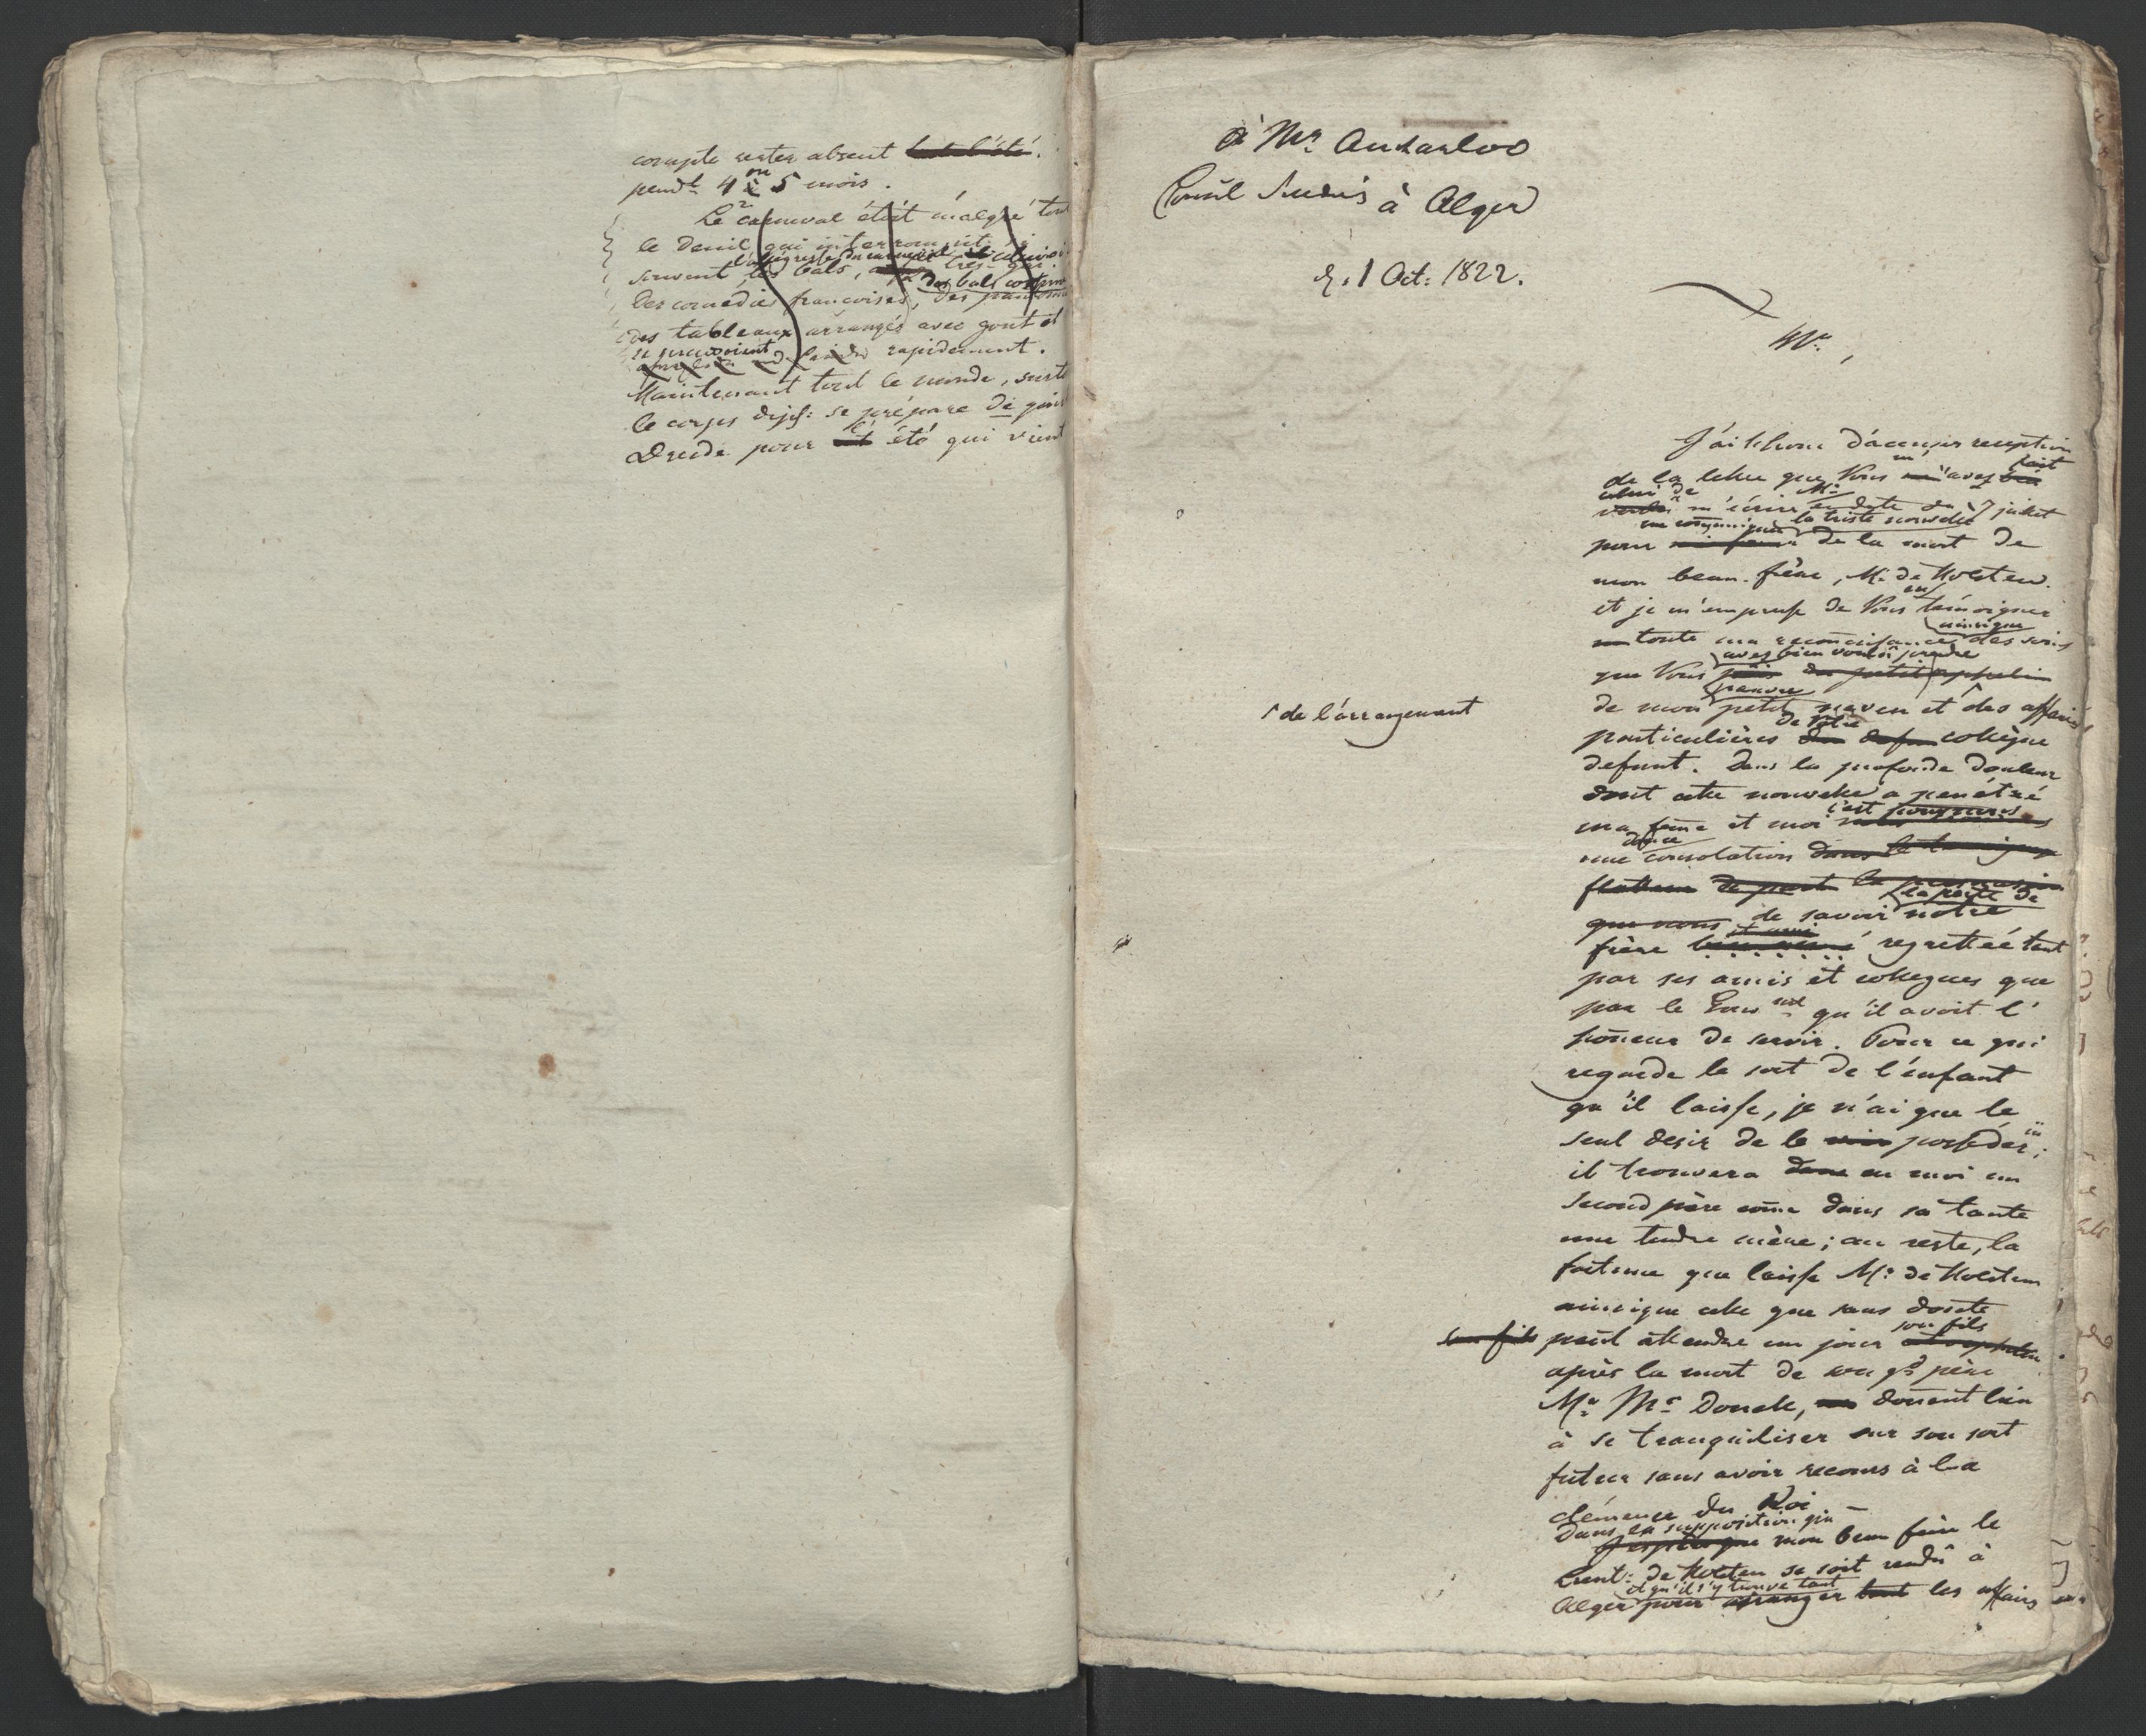 compte rester absent tout l'été.
pendt 4 ou 5 mois.
Le carneval étoit malgré tout
le deuil qui interrompit si
l'allégresse du carneval
souvent, les bals,
des bals costum
des comedies françoises, des
des tableaux arrangés avec gout et
se succedoient rapidement.
Maintenant tout le monde, surt
le corps dipl: se prépare de
Dresde pour l'été qui vient
à Mr. Ankarloo
Consul Suedois à Alger
d. 1 Oct: 1822.
Mr.,
J'ai l'honr d'accuser reception
de la lettre que Vous m'avez fait
celui de m'écrire en date du 7 juillet
pour me communiquer la triste nouvelle de la mort de
mon beau-frère, Mr. de Holsten.
et je m'empresse de Vous en témoigner
toute ma reconnoissance ainsique des soins
que Vous avez bien voulu prendre
de mon pauvre petit neveu et des affaires
de l'arrangement
particulières de Votre collègue
defunt. Dans la profonde douleur
dont cette nouvelle a penétré
ma feme et moi c'est
une douce consolation dans le
de savoir la perte de notre
frère bien aimé regrettée tant
par ses amis et collegues que
par le Gouvt qu'il avoit l'
honeur de servir. Pour ce qui
regarde le sort de l'enfant
qu'il laisse, je n'ai que le
seul desir de le posséder;
il trouvera en moi un
second père come dans sa tante
une tendre mère; au reste, la
fortune que laisse Mr. de Holsten
ainsique celle que sans doute
son fils peut attendre un jour son fils
après la mort de son gd père
Mr. Mc Donell, donnent lieu
à se tranquiliser sur son sort
futur sans avoir recours à la
clémence du Roi.
Dans la supposition que mon beau frère le
Lieut: de Holsten se soit rendu à
Alger et qu'il s'y trouve tant pour arranger les affaires